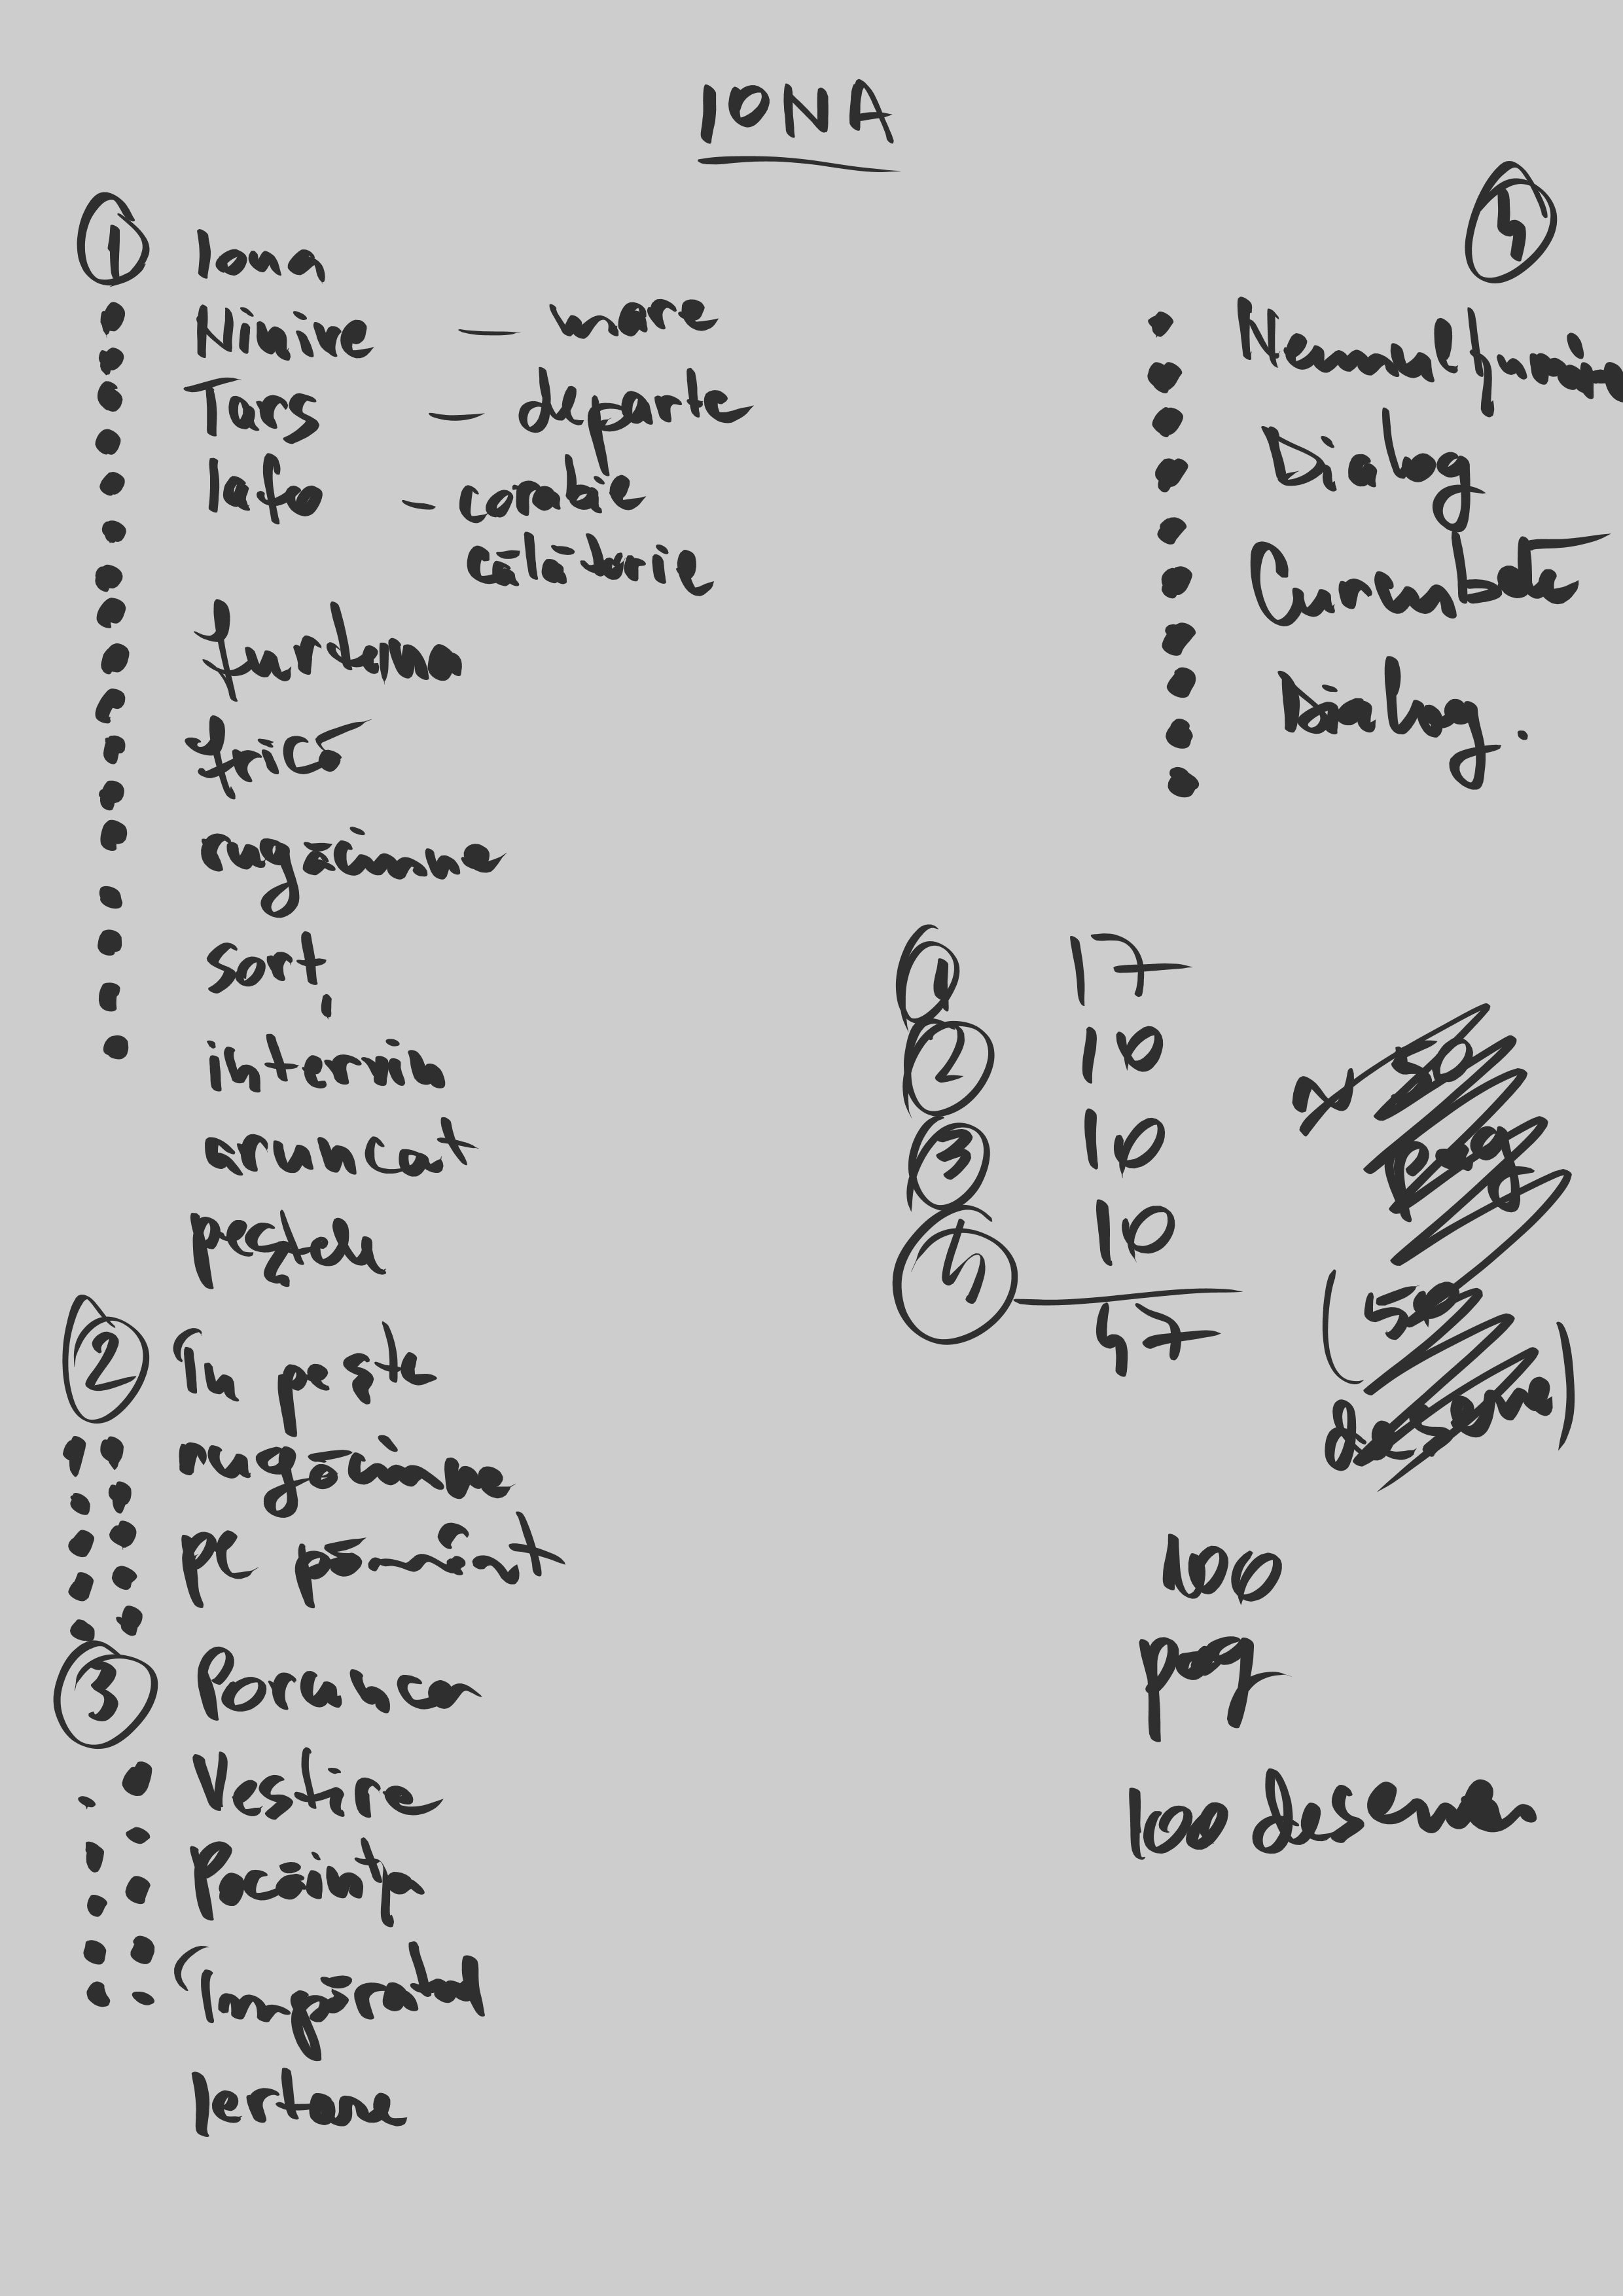 IONA
1 Iona
Ninive — mare
Tars — departe
Iafo — corabie
călătorie
furtună
frică
rugăciune
sorț
i
interior
aruncat
pește
2 În pește
rugăciune
pe pământ
3 Porunca
Vestire
Pocăință
Împăratul
Iertare
4
Nemulțumire
Dialog
Curcubete
Dialog.
1 17
2 10
3 10
4 10
47
100
pag
100 desene